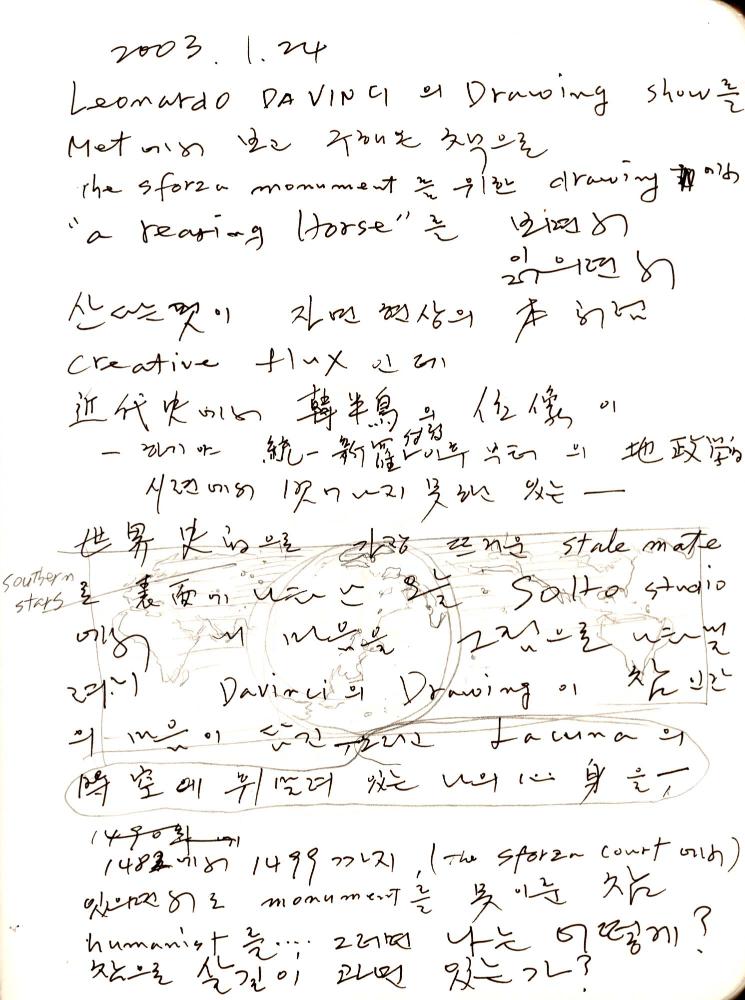 2003. 1. 24
Leonardo DA VINCI 의 Drawing show를
Met에서 보고 구해온 책으로
the sforza monument 를 위한 drawing 에서
"a rearing Horse" 를 보면서
읽으면서
산다는 것이 자연현상의 本 처럼
creative flux 인데
近代史에서 韓半島의 位像이
— 하기야 統一新羅 이후 부터의 地政學的
시련에서 벗어나지 못하고 있는 —
世界史的으로 가장 뜨거운 stale mate
southern
stars
를 裏面에 오늘 SoHo studio
에서 내 마음을 그림으로 나타낼
려니 Davinci의 Drawing이 참 인간
의 마음이 담긴 그리고 Lacuna의
時空에 있는 나의 心身을,
1482에서 1499까지, (the sforza court에서)
있으면서도 monument를 못 이룬 참
humanist를.... 그러면 나는 어떻게?
참으로 살길이 과연 있는가?